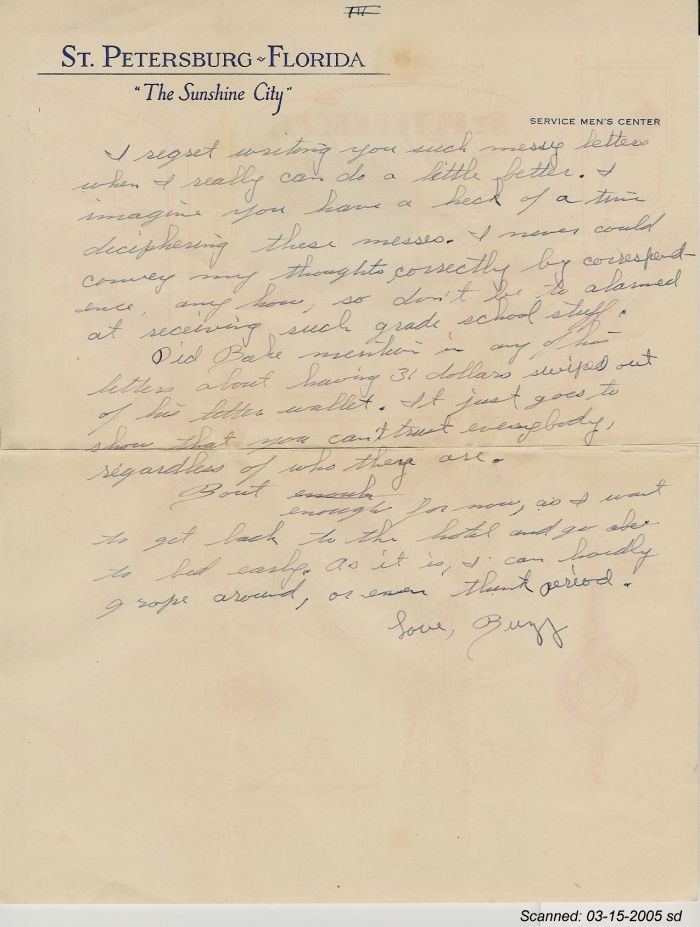 III
St. Petersburg ~ Florida
"The Sunshine City"
SERVICE MEN'S CENTER
I regret writing you such messy letters
when I really can do a little better. I
imagine you have a heck of a time
deciphering these messes. I never could
convey my thoughts correctly by correspond-
ence, any how, so don't be to alarmed
at receiving such grade school stuff.
Did Bake mention in any of his
letters about having 31 dollars swiped out
of his wallet. It just goes to
show that you can't trust everybody,
regardless of who they are.
Bout enough
enough for now, as I want
to get back to the hotel and go
to bed early. As it is, I can hardly
grope around, or even think period.
Love, Buzz
Scanned: 03-15-2005 sd